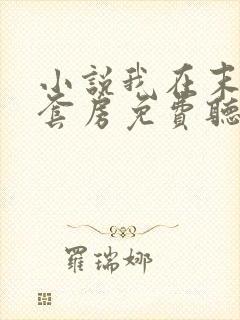 小說我在末
套房免費聽
羅瑞娜